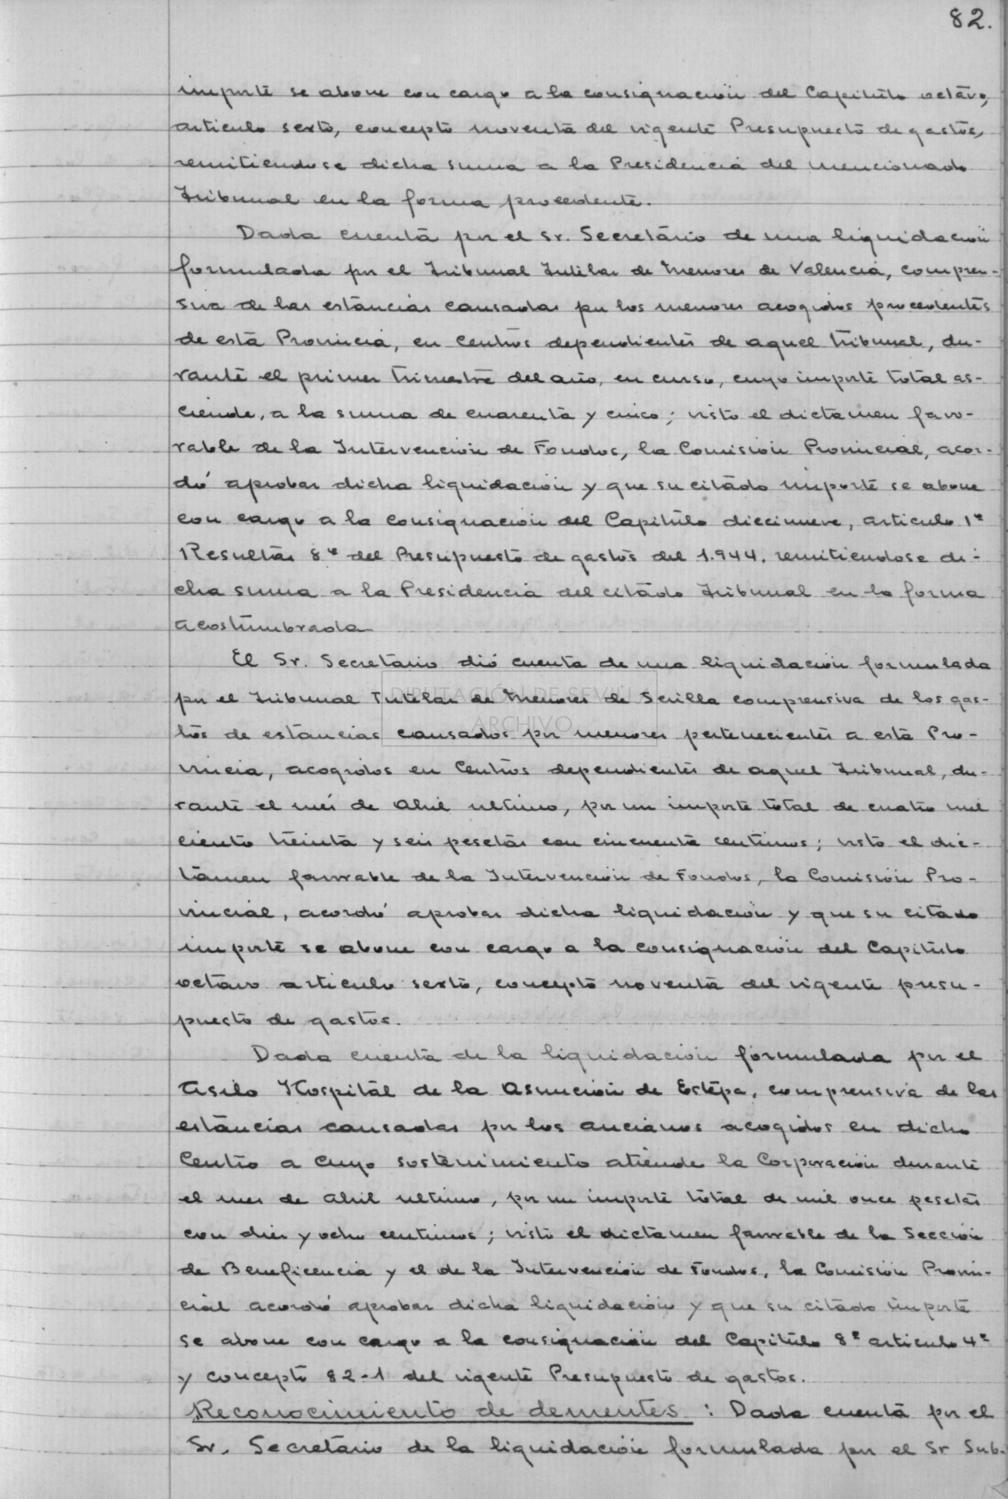 82.
importe se abone con cargo a la consignación del Capitulo octavo,
articulo sexto, concepto noventa del vigente Presupuesto de gastos,
remitiendose dicha suma a la Presidencia del mencionado
Tribunal en la forma procedente.
Dada cuenta por el Sr. Secretario de una liquidacion
formulada por el Tribunal Tutelar de Menores de Valencia, compren-
siva de las estancias causadas por los menores acogidos procedentes
de esta Provincia, en Centros dependientes de aquel Tribunal, du-
rante el primer trimestre del año, en curso, cuyo importe total as-
ciende, a la suma de cuarenta y cinco; visto el dictamen favo-
rable de la Intervencion de Fondos, la Comision Provincial, acor-
dó aprobar dicha liquidación y que su citado importe se abone
con cargo a la consignación del Capitulo diecinueve, articulo 1º
Resultas 8º del Presupuesto de gastos del 1.944. remitiendose di-
cha suma a la Presidencia del citado Tribunal en la forma
acostumbrada
El Sr. Secretario dió cuenta de una liquidacion formulada
por el Tribunal Tutelar de Menores de Sevilla comprensiva de los gas-
tos de estancias causados por menores pertenecientes a esta Pro-
vincia, acogidos en Centros dependientes de aquel Tribunal, du-
rante el més de Abril ultimo, por un importe total de cuatro mil
ciento treinta y seis pesetas con cincuenta centimos; visto el dic-
támen favorable de la Intervencion de Fondos, la Comisión Pro-
vincial, acordó aprobar dicha liquidación y que su citado
importe se abone con cargo a la consignación del Capitulo
octavo articulo sexto, concepto noventa del vigente presu-
puesto de gastos.
Dada cuenta de la liquidacion formulada por el
Asilo Hospital de la Asunción de Estepa, comprensiva de las
estancias causadas por los ancianos acogidos en dicho
Centro a cuyo sostenimiento atiende la Corporación durante
el mes de Abril ultimo, por un importe total de mil once pesetas
con diez y ocho centimos; visto el dictamen favorable de la Seccion
de Beneficencia y el de la Intervención de Fondos, la Comision Provin-
cial acordó aprobar dicha liquidación y que su citado importe
se abone con cargo a la consignación del Capitulo 8º articulo 4º
y concepto 82-1 del vigente Presupuesto de gastos.
Reconocimiento de dementes : Dada cuenta por el
Sr. Secretario de la liquidación formulada por el Sr Sub-
DIPUTACIÓN DE SEVILLA
ARCHIVO